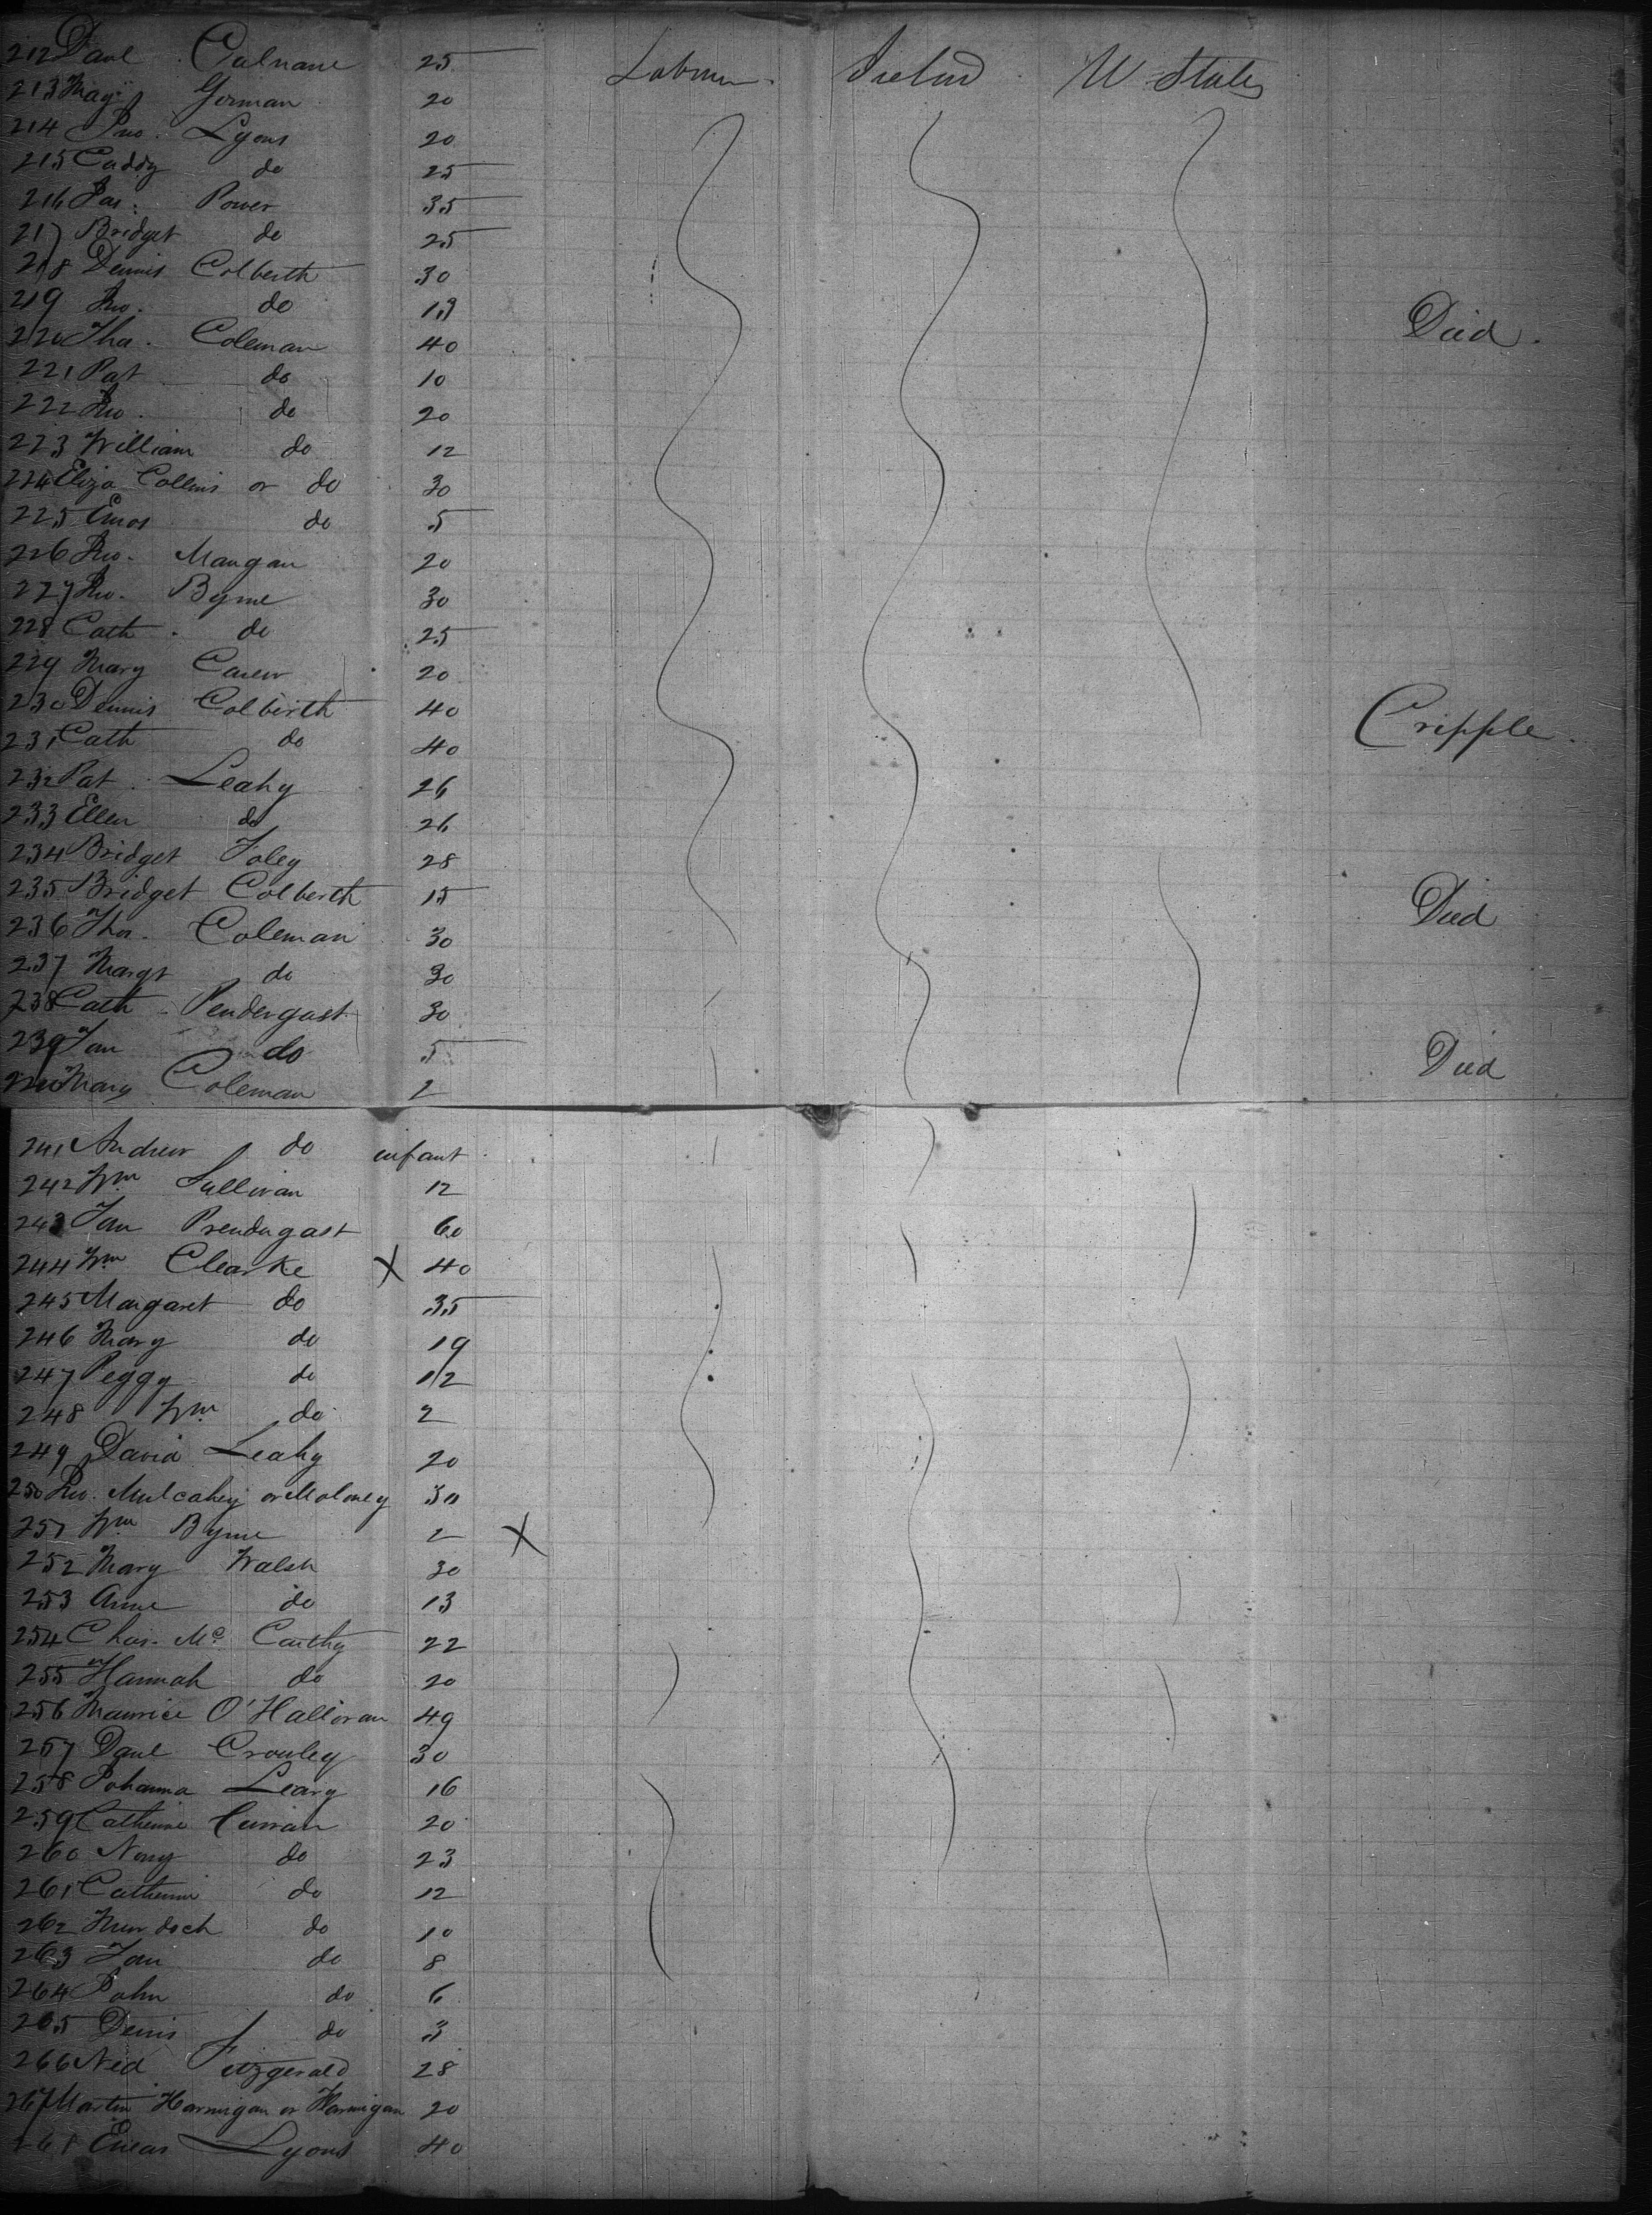 212 Danl Calnane 25 Labourer Ireland U States
213 Magt Gorman 20
214 Jno. Lyons 20
215 Caddy do 25
216 Jas. Power 35
217 Bridget do 25
218 Dennis Colberth 30
219 Jno. do 13 Died.
220 Tho. Coleman 40
221 Pat do 10
222 Jno. do 20
223 William do 12
224 Eliza Collins or do 30
225 Enos do 5
226 Jno. Mangan 20
227 Jno. Byrne 30
228 Cath. do 25
229 Mary Carew 20
230 Dennis Colberth 40 Cripple.
231 Cath do 40
232 Pat. Leahy 26
233 Ellen do 26
234 Bridget Foley 28
235 Bridget Colberth 15 Died
236 Thos. Coleman 30
237 Margt do 30
238 Cath Pendergast 30
239 Jas do 5 Died
240 Mary Coleman 2
241 Andrew do infant
242 Wm Sullivan 12
243 Jas Prendergast 60
244 Wm Clearke X 40
245 Margaret do 35
246 Mary do 19
247 Peggy do 12
248 Wm. do 2
249 David Leahy 20
250 Jno. Mulcahey or Moloney 30
251 Wm Byrne 2 X
252 Mary Walsh 30
253 Anne do 13
254 Chas. Mc Carthy 22
255 Hannah do 20
256 Maurice O'Halloran 49
257 Danl Crowley 30
258 Johanna Leary 16
259 Catherine Curran 20
260 Nony do 23
261 Catherine do 12
262 Murdoch do 10
263 Jas do 8
264 John do 6
265 Denis do 3
266 Ned Fitzgerald 28
267 Martin Harnigan or Hannigan 20
268 Eneas Lyons 40